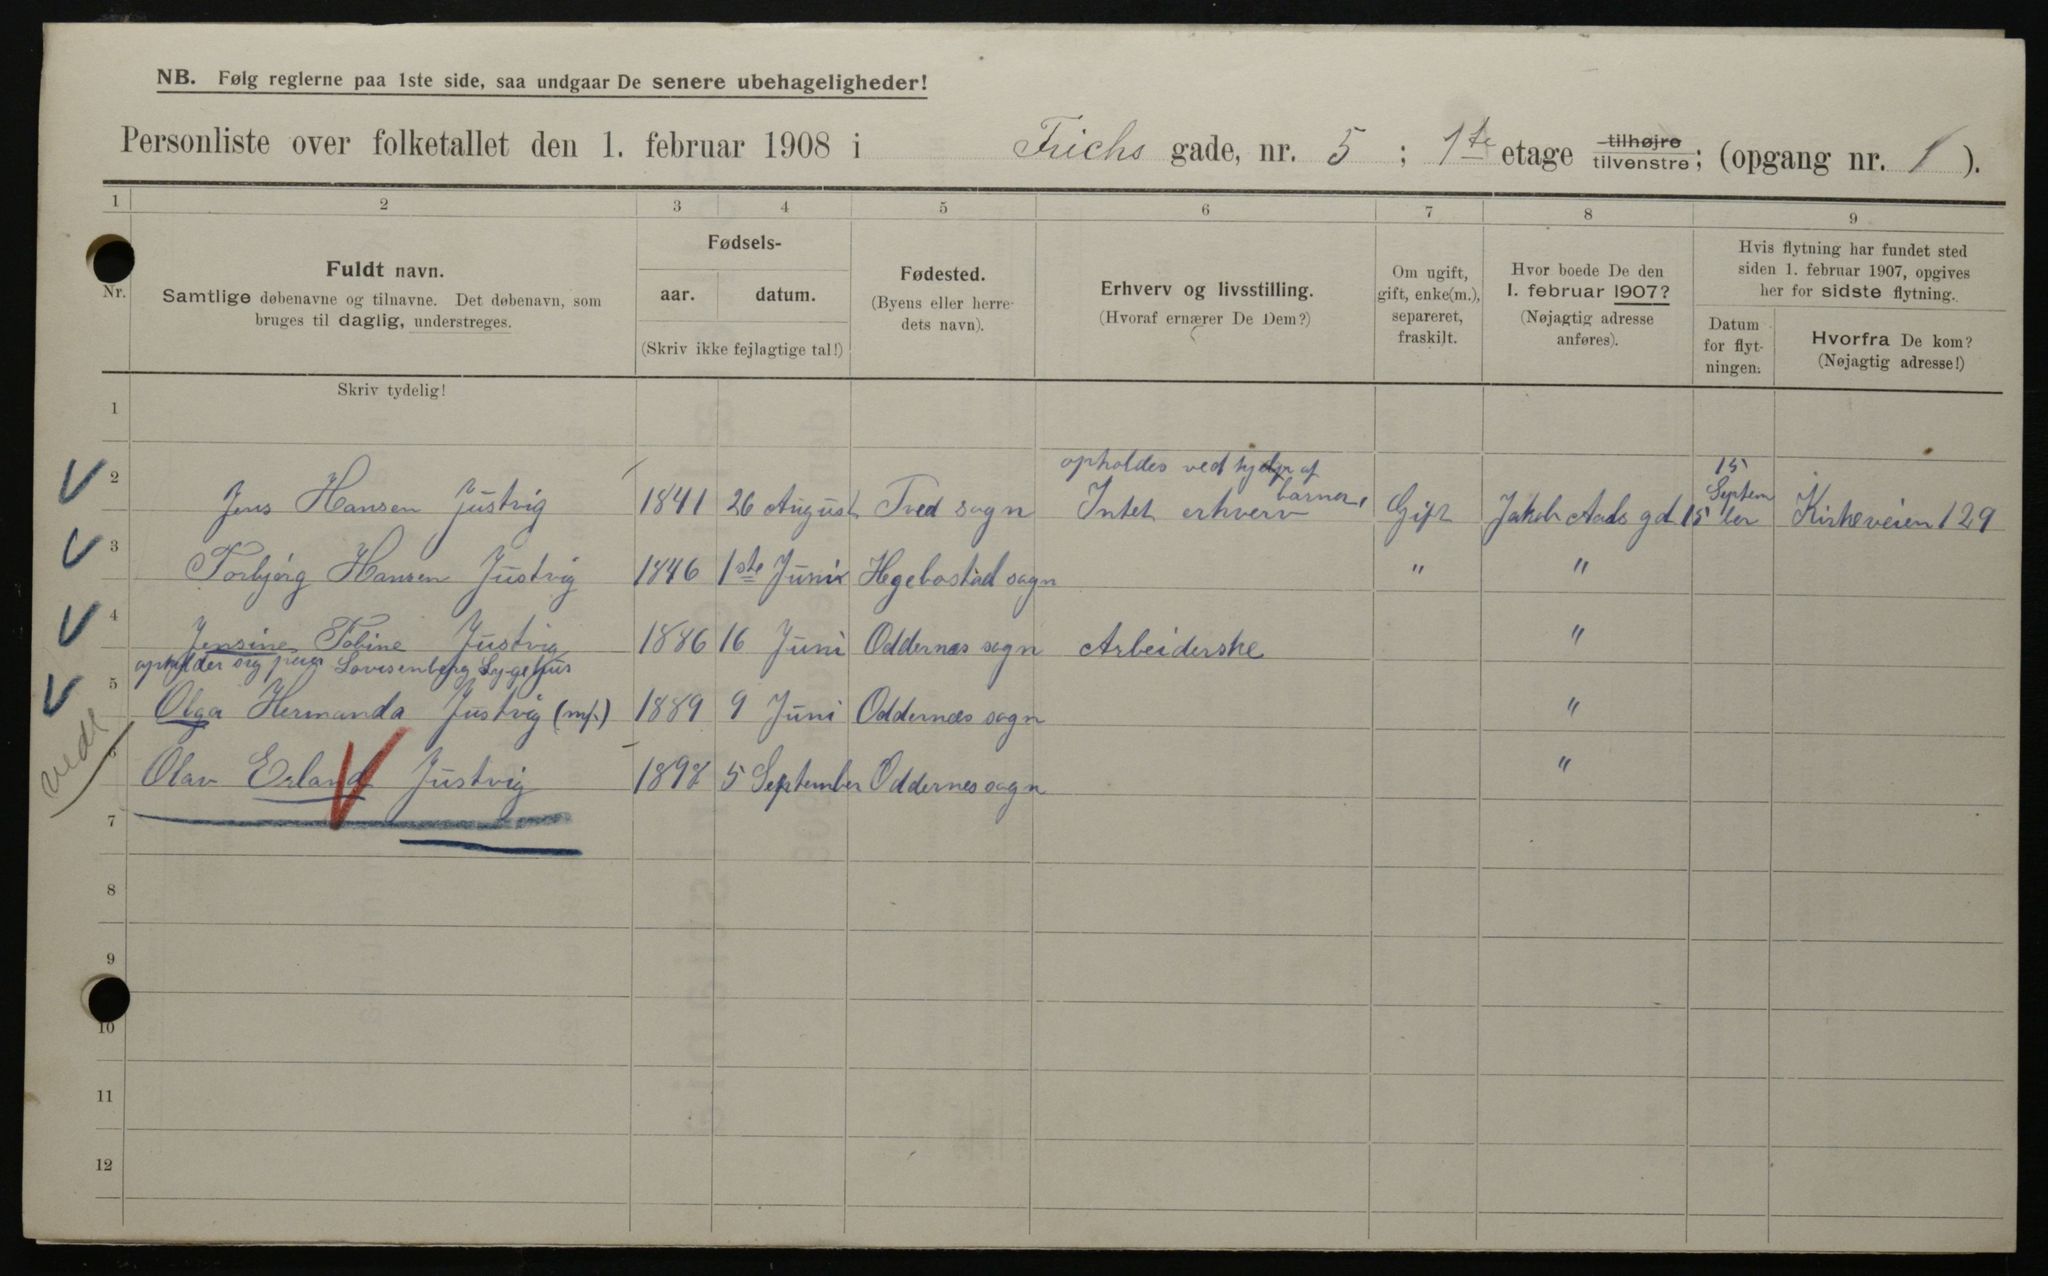 NB. Følg reglerne paa 1ste side, saa undgaar De senere ubehageligheder!
Personliste over folketallet den 1. februar 1908 i Frichs gade, nr. 5 ; 1ste etage tilhøjre tilvenstre; (opgang nr. 1 ).
1 2 3 4 5 6 7 8 9
Nr.
Fuldt navn.
Samtlige døbenavne og tilnavne. Det døbenavn, som
bruges til daglig, understreges.
Skriv tydelig!
Fødsels-
aar. datum.
(Skriv ikke fejlagtige tal!)
Fødested.
(Byens eller herre-
dets navn).
Erhverv og livsstilling.
(Hvoraf ernærer De Dem?)
Om ugift,
gift, enke(m.),
separeret,
fraskilt.
Hvor boede De den
1. februar 1907?
(Nøjagtig adresse
anføres).
Hvis flytning har fundet sted
siden 1. februar 1907, opgives
her for sidste flytning.
Datum
for flyt-
ningen.
Hvorfra De kom?
(Nøjagtig adresse!)
1
opholdes ved hjelp af
barner
15
Septem
2 Jens Hansen Justvig 1841 26 August Tved sogn Intet erhverv Gift Jakob Aals gd 15 ber Kirkeveien 129
3 Torbjørg Hansen Justvig 1846 1ste Juni Hegebostad sogn " "
4 Jensine Tobine Justvig 1886 16 Juni Oddernes sogn Arbeiderske "
opholder sig paa Lovisenberg Sygehus
5 Olga Hermanda Justvig (mf.) 1889 9 Juni Oddernes sogn "
6 Olav Erland Justvig 1898 5 September Oddernes sogn "
7
8
9
10
11
12